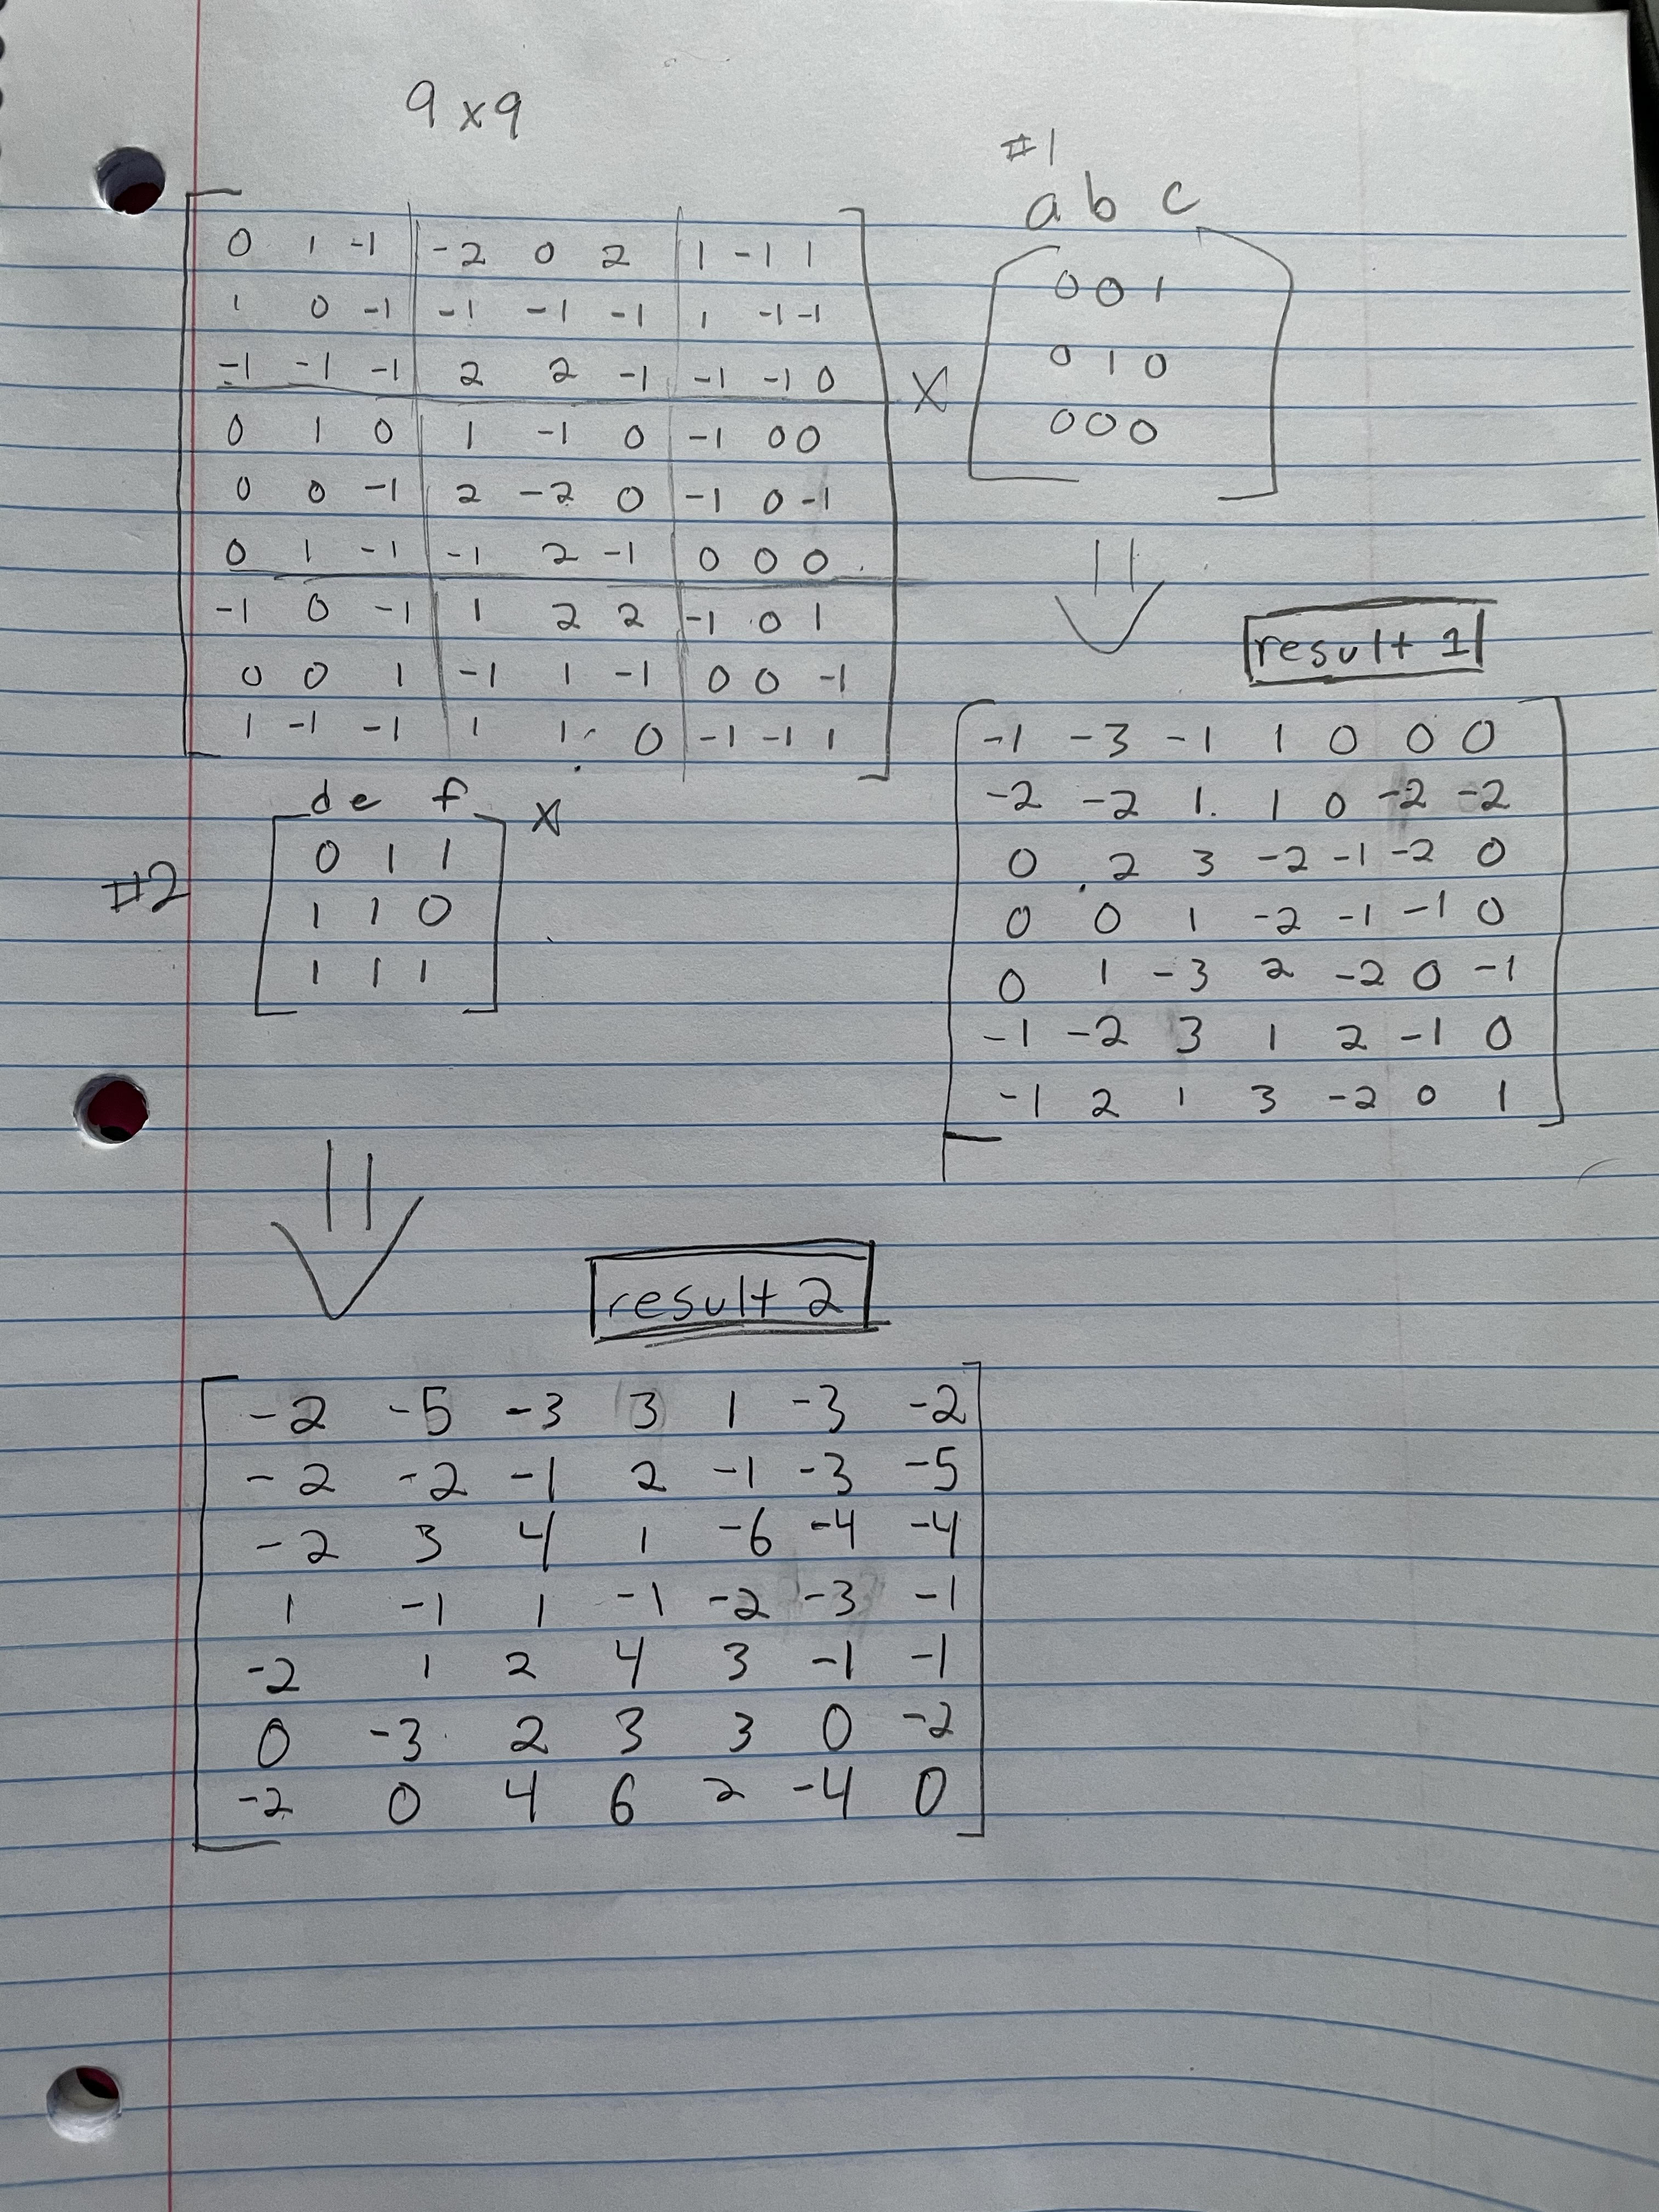 9 x 9
#1
a b c
0 1 -1 -2 0 2 1 -1 1
1 0 -1 -1 -1 -1 1 -1 -1
-1 -1 -1 2 2 -1 -1 -1 0
0 1 0 1 -1 0 -1 0 0
0 0 -1 2 -2 0 -1 0 -1
0 1 -1 -1 2 -1 0 0 0
-1 0 -1 1 2 2 -1 0 1
0 0 1 -1 1 -1 0 0 -1
1 -1 -1 1 1 0 -1 -1 1
x
0 0 1
0 1 0
0 0 0
result 1
-1 -3 -1 1 0 0 0
-2 -2 1 1 0 -2 -2
0 2 3 -2 -1 -2 0
0 0 1 -2 -1 -1 0
0 1 -3 2 -2 0 -1
-1 -2 3 1 2 -1 0
-1 2 1 3 -2 0 1
d e f x
#2
0 1 1
1 1 0
1 1 1
result 2
-2 -5 -3 3 1 -3 -2
-2 -2 -1 2 -1 -3 -5
-2 3 4 1 -6 -4 -4
1 -1 1 -1 -2 -3 -1
-2 1 2 4 3 -1 -1
0 -3 2 3 3 0 -2
-2 0 4 6 2 -4 0